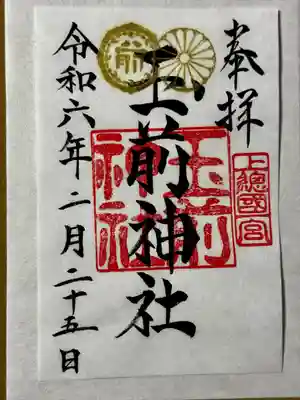 奉拝
上總國一宮
玉前神社
玉前神社
令和六年二月二十五日
前